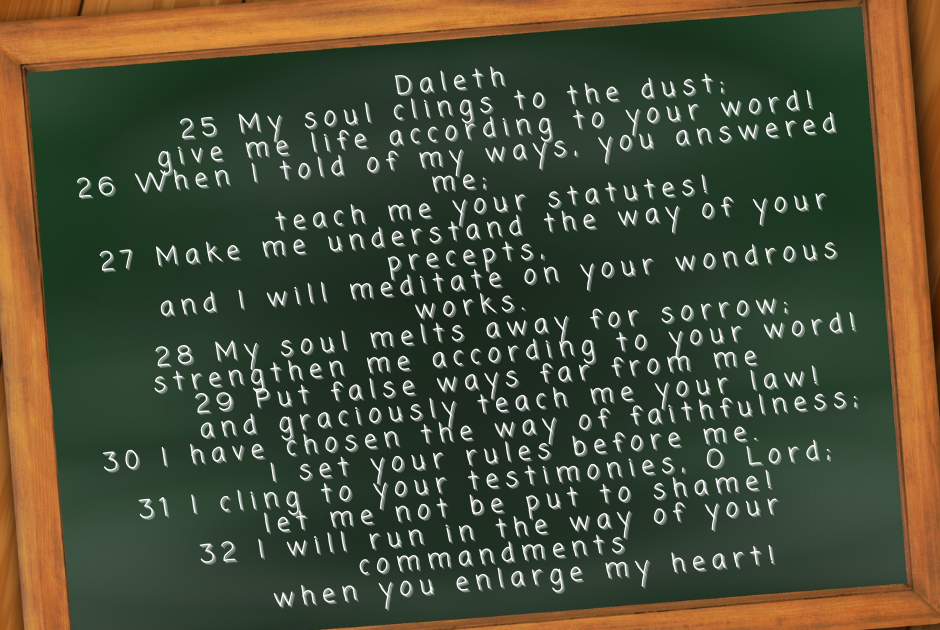 Daleth
25 My soul clings to the dust;
give me life according to your word!
26 When I told of my ways, you answered
me;
teach me your statutes!
27 Make me understand the way of your
precepts,
and I will meditate on your wondrous
works.
28 My soul melts away for sorrow;
strengthen me according to your word!
29 Put false ways far from me
and graciously teach me your law!
30 I have chosen the way of faithfulness;
I set your rules before me.
31 I cling to your testimonies, O Lord;
let me not be put to shame!
32 I will run in the way of your
commandments
when you enlarge my heart!